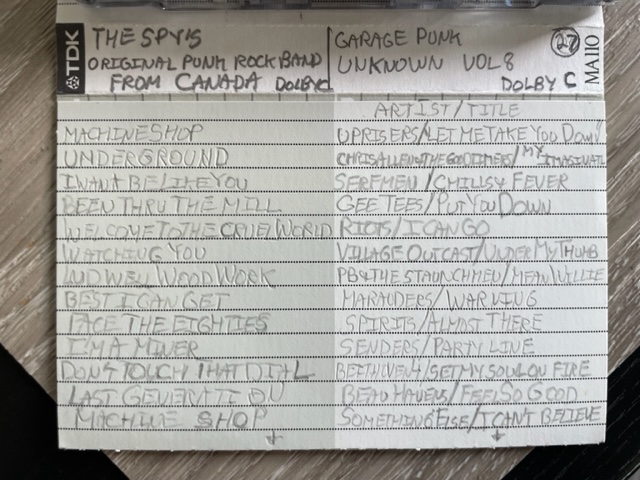 TDK
THE SPY'S
ORIGINAL PUNK ROCK BAND
FROM CANADA DOLBY C
MACHINE SHOP
UNDERGROUND
I WANT BE LIKE YOU
BEEN THRU THE MILL
WELCOME TO THE CRUEL WORLD
WATCHING YOU
WOODWORK
BEST I CAN GET
FACE THE EIGHTIES
I'M A MINER
DON'T TOUCH THAT DIAL
LAST GENERATION
MACHINE SHOP
GARAGE PUNK
UNKNOWN VOL 8
DOLBY C
27
MA110
ARTIST/TITLE
UPRISERS/LET ME TAKE YOU DOWN
CHRIS ALLEN & THE GOOD TIMERS/MY IMAGINATI
SERFMEN/CHILLSY FEVER
GEE TEES/PUT YOU DOWN
RIOTS/I CAN GO
VILLAGE OUTCAST/UNDER MY THUMB
PB & THE STAUNCHMEN/MEAN WILLIE
MARAUDERS/WARNING
SPIRITS/ALMOST THERE
SENDERS/PARTY LINE
BEETHVEN 4/SET MY SOUL ON FIRE
BEAU HAVENS/FEEL SO GOOD
SOMETHING ELSE/I CAN'T BELIEVE